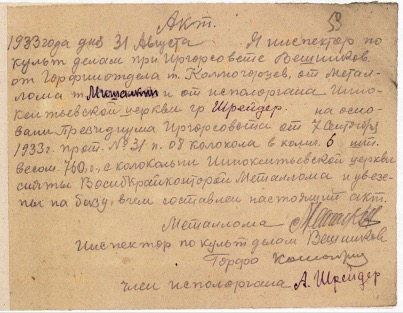 Акт.
1933 года дня 31 Августа Я инспектор по
культ делам при Иргорсовете Вешников
от Горфинотдела т. Колмогорцев, от метал-
лома т. и от исполоргана Инно-
кентьевской церкви гр. Шрейдер на осно-
вани Президиума Иргорсовета от 7 Сентября
1933 г. прот. № 31 п. 08 колокола в колич. 6 шт.
весом 760, с колокольни Иннокентьевской церкви
сняты Востсибкрайконторой Металлома и увезе-
ны на базу, в чем составлен настоящий акт.
Металлома
Инспектор по культ делам Вешников
Горфо
член исполоргана А. Шрейдер